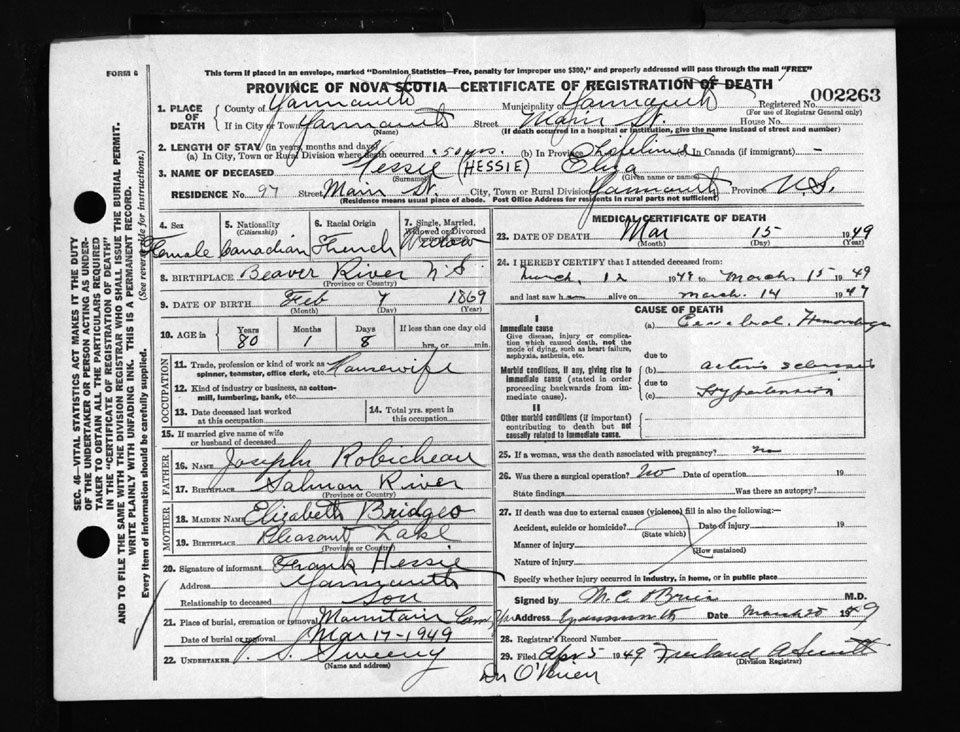 FORM 6
This form if placed in an envelope, marked "Dominion Statistics—Free, penalty for improper use $300," and properly addressed will pass through the mail "FREE"
PROVINCE OF NOVA SCOTIA—CERTIFICATE OF REGISTRATION OF DEATH
002263
1. PLACE OF DEATH
County of Yarmouth Municipality of Yarmouth Registered No.
(For use of Registrar General only)
If in City or Town Yarmouth Street Main St. House No.
(Name) (If death occurred in a hospital or institution, give the name instead of street and number)
2. LENGTH OF STAY (in years, months and days)
(a) In City, Town or Rural Division where death occurred 50 yrs. (b) In Province Lifetime In Canada (if immigrant) —
3. NAME OF DECEASED Hessie (HESSIE) Eliza
(Surname) (Given name or names)
RESIDENCE No. 97 Street Main St. City, Town or Rural Division Yarmouth Province N.S.
(Residence means usual place of abode. Post Office Address for residents in rural parts not sufficient)
4. Sex 5. Nationality (Citizenship) 6. Racial Origin 7. Single, Married, Widowed or Divorced
Female Canadian French Widow
8. BIRTHPLACE Beaver River N.S.
(Province or Country)
9. DATE OF BIRTH Feb 7 1869
(Month) (Day) (Year)
10. AGE in Years Months Days If less than one day old
80 1 8 hrs. or min.
OCCUPATION
11. Trade, profession or kind of work as spinner, teamster, office clerk, etc. Housewife
12. Kind of industry or business, as cotton-mill, lumbering, bank, etc.
13. Date deceased last worked at this occupation
14. Total yrs. spent in this occupation
15. If married give name of wife or husband of deceased
FATHER
16. NAME Joseph Robicheau
17. BIRTHPLACE Salmon River
(Province or Country)
MOTHER
18. MAIDEN NAME Elizabeth Bridgeo
19. BIRTHPLACE Pleasant Lake
(Province or Country)
20. Signature of informant Frank Hessie
Address Yarmouth
Relationship to deceased Son
21. Place of burial, cremation or removal Mountain Cem, Yar
Date of burial or removal Mar 17-1949
22. UNDERTAKER V. S. Sweeny
(Name and address)
MEDICAL CERTIFICATE OF DEATH
23. DATE OF DEATH Mar 15 1949
(Month) (Day) (Year)
24. I HEREBY CERTIFY that I attended deceased from
March, 12 1949 to March 15 1949
and last saw h alive on March. 14 1947
CAUSE OF DEATH
I
Immediate cause (a) Cerebral Hemorrhage
Give disease, injury or complication which caused death, not the mode of dying, such as heart failure, asphyxia, asthenia, etc.
due to
Morbid conditions, if any, giving rise to immediate cause (stated in order proceeding backwards from immediate).
(b) Arterio sclerosis
due to
(c) Hypertension
II
Other morbid conditions (if important) contributing to death but not causally related to immediate cause.
25. If a woman, was the death associated with pregnancy? no
26. Was there a surgical operation? No Date of operation 19
State findings Was there an autopsy?
27. If death was due to external causes (violence) fill in also the following:—
Accident, suicide or homicide? Date of injury 19
(State which)
Manner of injury
(How sustained)
Nature of injury
Specify whether injury occurred in industry, in home, or in public place
Signed by M.C. O'Brien M.D.
Address Yarmouth Date March 20 1949
28. Registrar's Record Number
29. Filed Apr 5 1949
(Division Registrar)
Dr O'Brien
SEC. 46—VITAL STATISTICS ACT MAKES IT THE DUTY
OF THE UNDERTAKER OR PERSON ACTING AS UNDER-
TAKER TO OBTAIN ALL THE PARTICULARS REQUIRED
IN THE "CERTIFICATE OF REGISTRATION OF DEATH"
AND TO FILE THE SAME WITH THE DIVISION REGISTRAR WHO SHALL ISSUE THE BURIAL PERMIT.
WRITE PLAINLY WITH UNFADING INK. THIS IS A PERMANENT RECORD.
Every item of information should be carefully supplied. (See reverse side for instructions.)